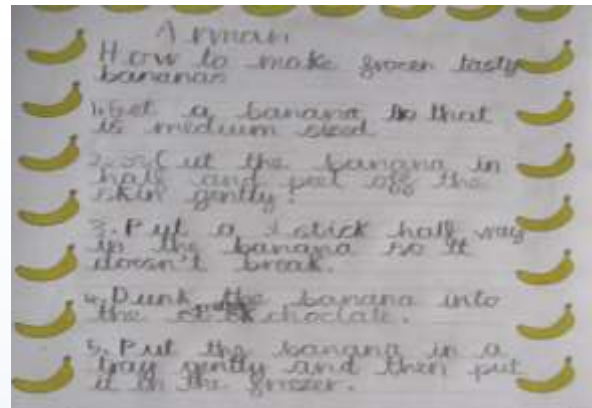 Arman
How to make frozen tasty
bananas
1. Get a banana that
is medium sized
2. Cut the banana in
half and peel off the
skin gently.
3. Put a stick half way
in the banana so it
doesn't break.
4. Dunk the banana into
the choclate.
5. Put the banana in a
tray gently and then put
it in the frozer.